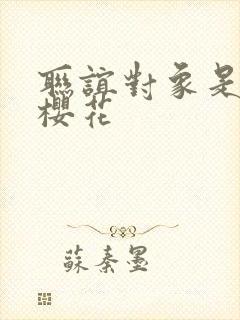 聯誼對象是
櫻花
蘇秦墨